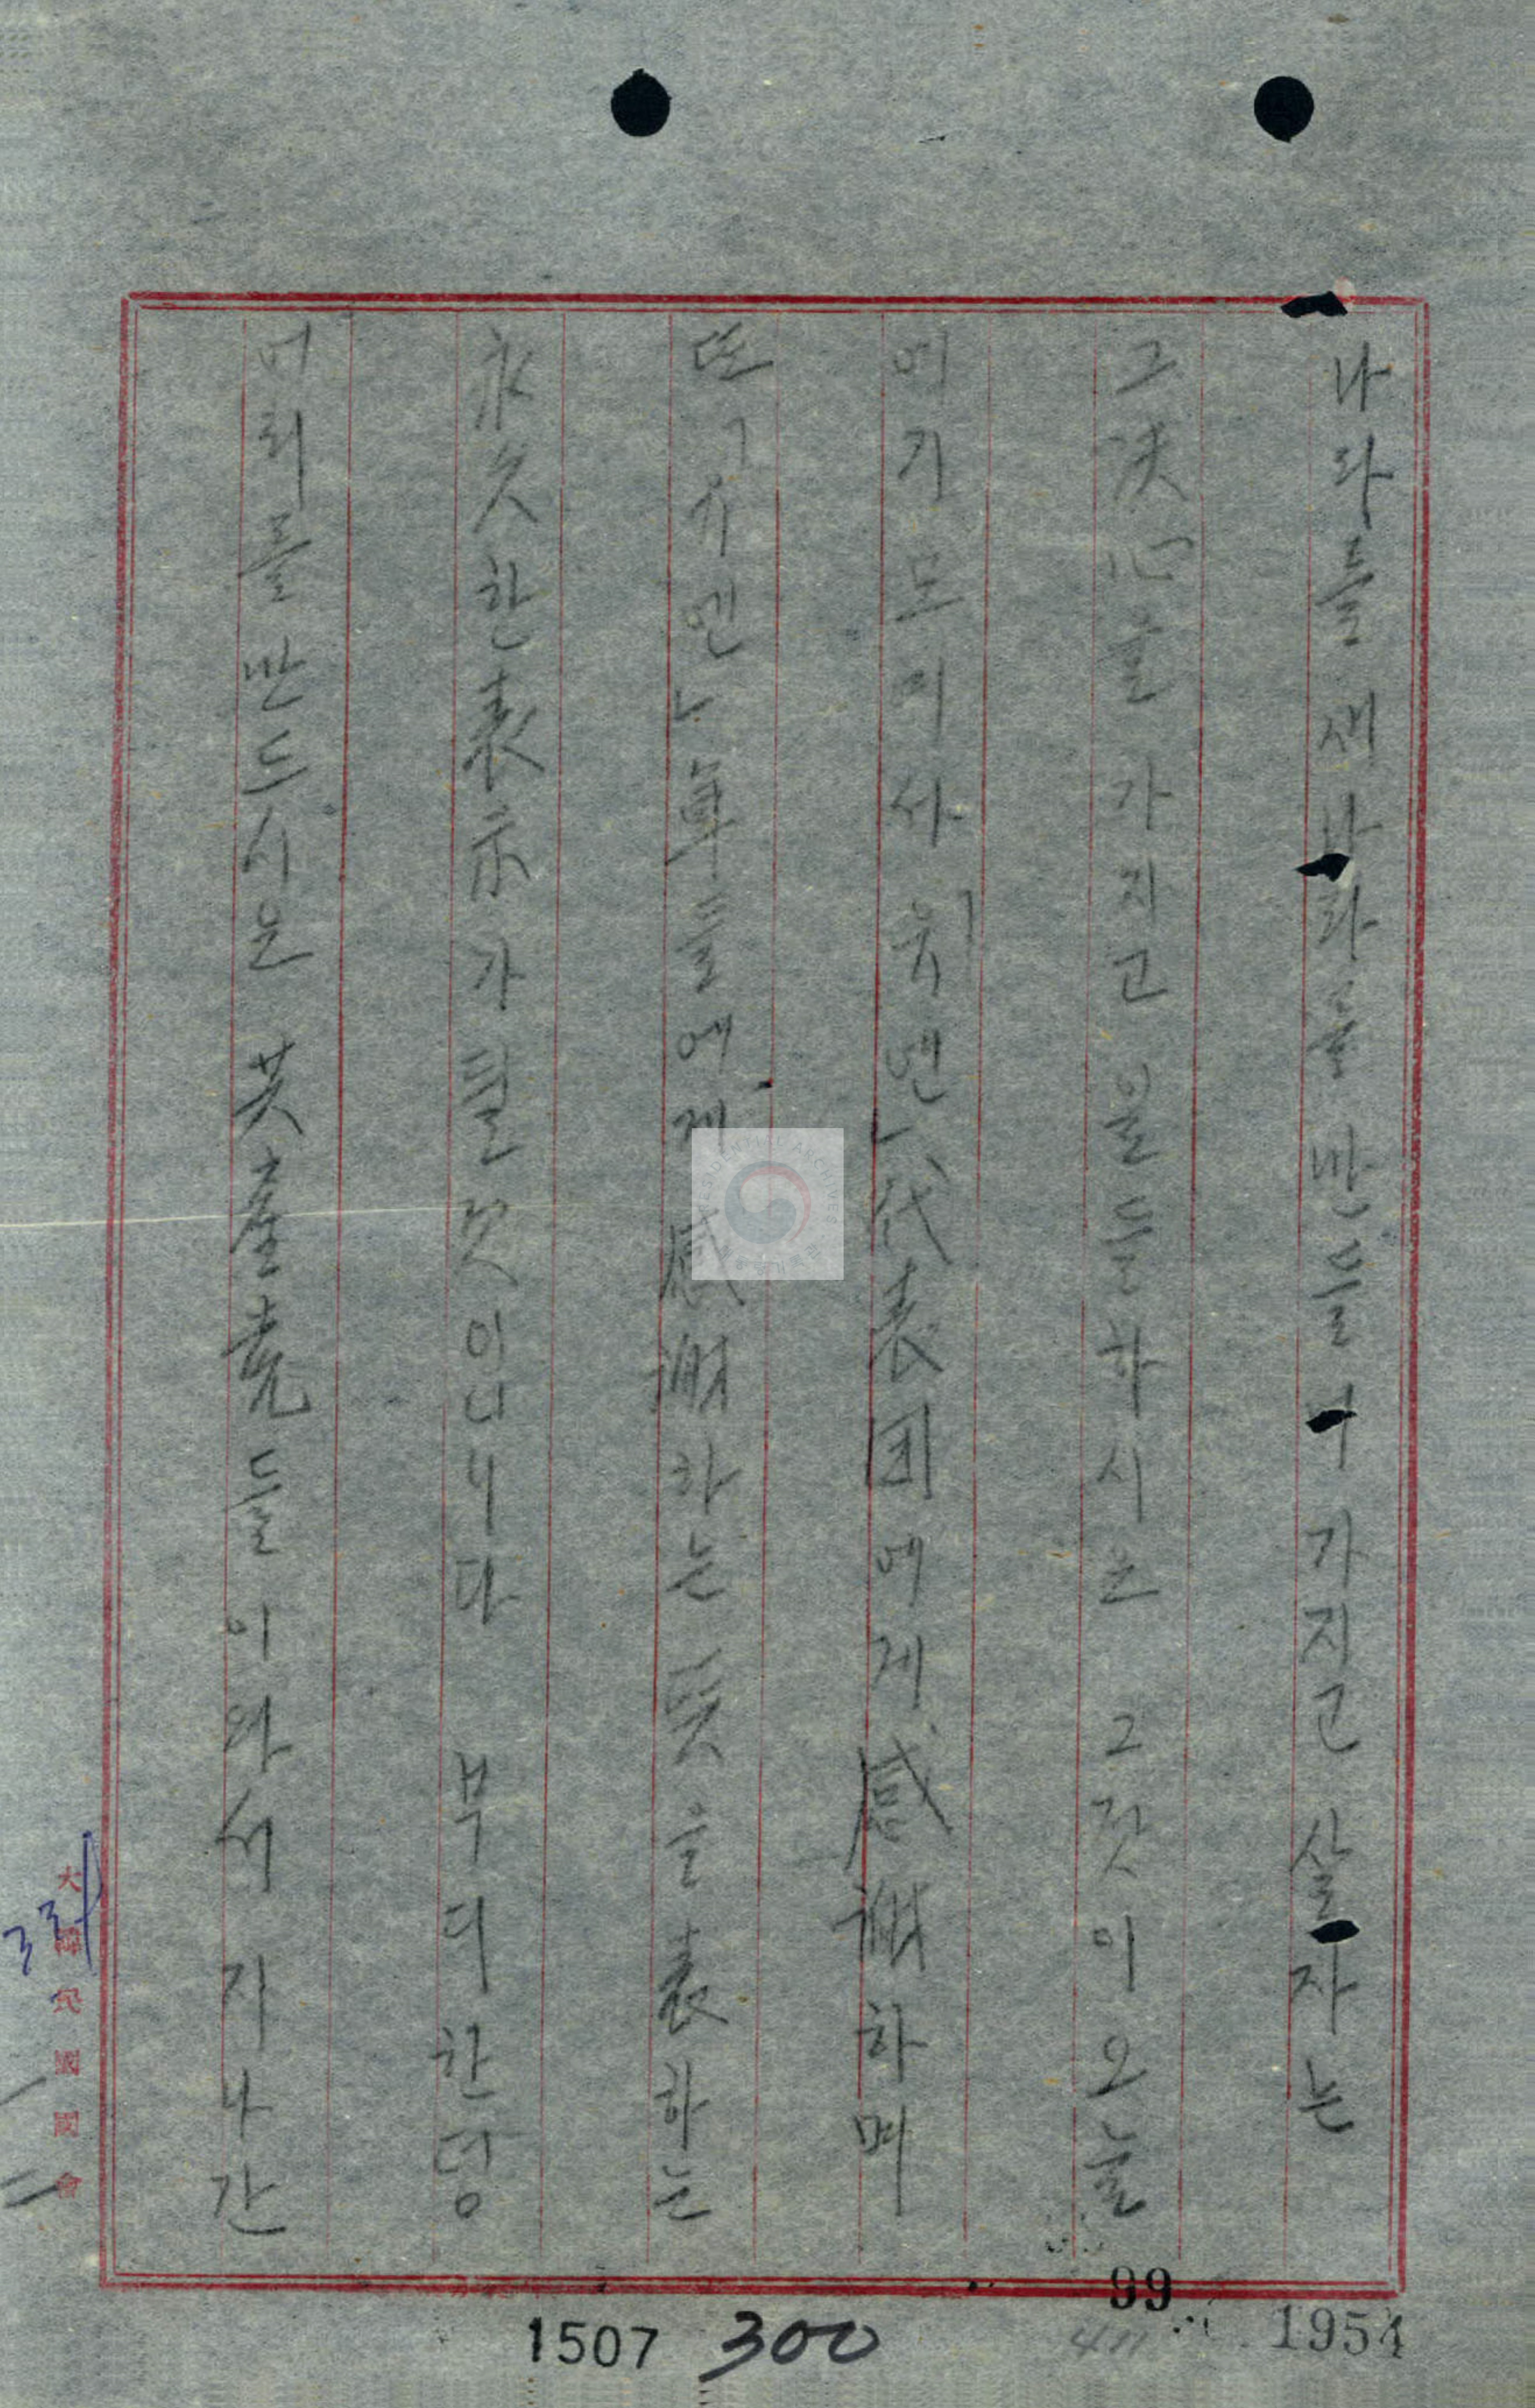 나라를 새나라를 만들어가지고 살자는
그 决心을 가지고 일들하시는 그것이 오늘
여기 모이사 「유엔」代表団에게 感謝하며
또 「유엔」軍들에게 感謝하는 뜻을 表하는
永久한 表示가 될것입니다 부디 한덩
어리를 만드시오 共產党들이 와서 지나간
大韓民國國會
99
1954
300
1507